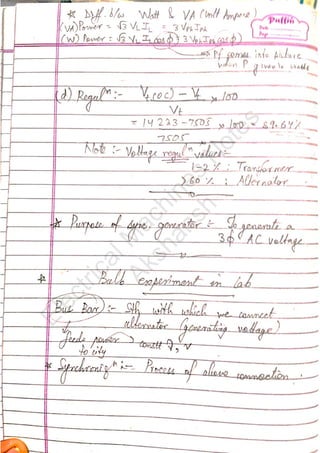 * Diff. b/w Watt & VA (Volt Ampere)
(VA) Power = √3 VL IL = 3 VPh IPh
(W) Power = √3 VL IL cos ϕ 3 VPh IPh cos ϕ
Pullin
Date
Page
Pf comes into picture
when P
(d) Regulⁿ :- Vt(oc) - Vt × 100
Vt
= 14 223 - 7505 × 100 = 89.64%
7505
Note :- Voltage regulⁿ values :-
1-2 % : Transformer
>60 % : Alternator
* Purpose of sync. generator :- To generate a
3ϕ AC voltage
* Bulb experiment in lab
Bus Bar :- Sth with which we connect
alternator (generating voltage)
feeds power to city
constt f, V
* Synchronizⁿ :- Process of above connection.
Electrical Machines Notes
Akshansh